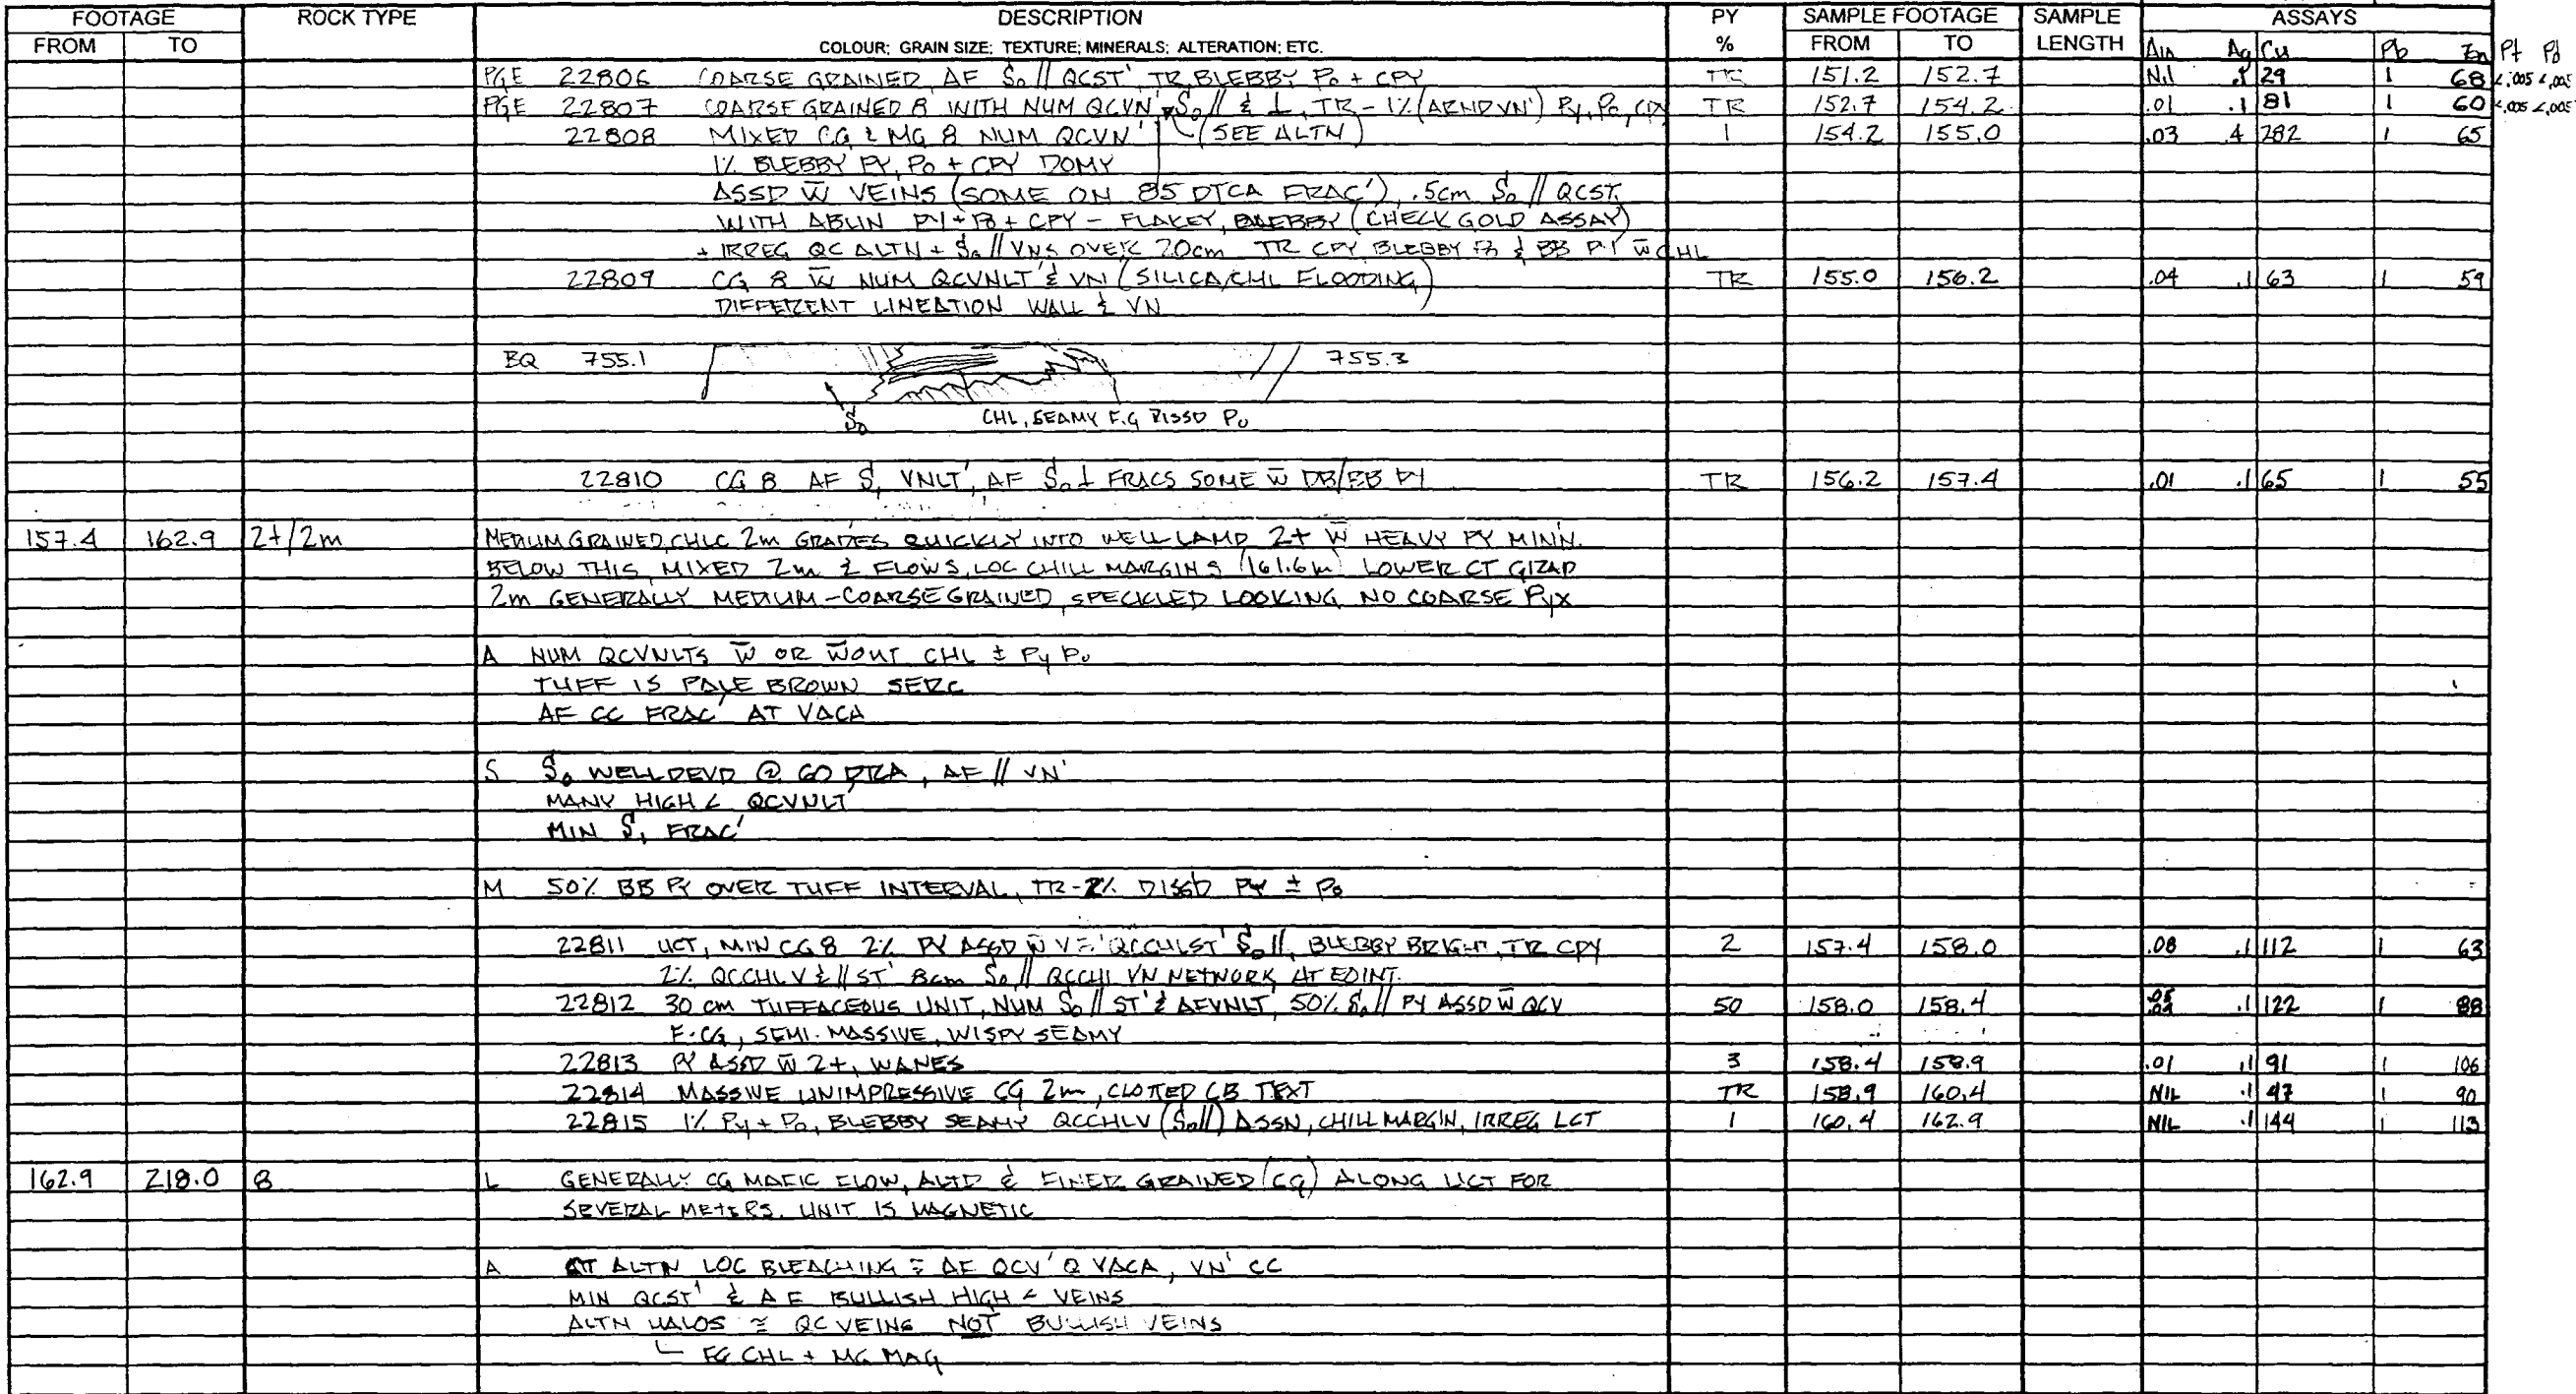 FOOTAGE ROCK TYPE DESCRIPTION PY SAMPLE FOOTAGE SAMPLE ASSAYS
FROM TO COLOUR; GRAIN SIZE; TEXTURE; MINERALS; ALTERATION; ETC. % FROM TO LENGTH Au Ag Cu Pb Zn Pt Pd
PGE 22806 COARSE GRAINED, AF So // QCST' TR BLEBBY Po + CPY TR 151.2 152.7 Nil .1 29 1 68 <.005 <.005
PGE 22807 COARSE GRAINED 8 WITH NUM QCVN' So // & ⊥, TR - 1% (ARND VN') Py, Po, CPY TR 152.7 154.2 .01 .1 81 1 60 <.005 <.005
22808 MIXED CG & MG 8 NUM QCVN' (SEE ALTN) 1 154.2 155.0 .03 .4 282 1 65
1% BLEBBY PY, Po + CPY DOMY
ASSD W̄ VEINS (SOME ON 85 DTCA FRAC'), .5cm So // QCST,
WITH ABUN PY + Po + CPY - FLAKEY, BLEBBY (CHECK GOLD ASSAY)
+ IRREG QC ALTN + So // VNS OVER 20cm TR CPY BLEBBY Po & BB PY W̄ CHL
22809 CG 8 W̄ NUM QCVNLT' & VN (SILICA/CHL FLOODING) TR 155.0 156.2 .04 .1 63 1 59
DIFFERENT LINEATION WALL & VN
BQ 755.1 755.3
So CHL, SEAMY F.G DISSD Po
22810 CG 8 AF S1 VNLT', AF So ⊥ FRACS SOME W̄ DB/BB PY TR 156.2 157.4 .01 .1 65 1 55
157.4 162.9 2t/2m MEDIUM GRAINED, CHLC 2m GRADES QUICKLY INTO WELL LAMD 2t W̄ HEAVY PY MINN.
BELOW THIS, MIXED 2m & FLOWS, LOC CHILL MARGINS (161.6m) LOWER CT GRAD
2m GENERALLY MEDIUM-COARSE GRAINED, SPECKLED LOOKING NO COARSE Pyx
A NUM QCVNLTS W̄ OR W̄OUT CHL ± Py Po
TUFF IS PALE BROWN SERC
AF CC FRAC' AT VACA
S So WELL DEVD @ 60 DTCA, AF // VN'
MANY HIGH < QCVNLT'
MIN S1 FRAC'
M 50% BB PY OVER TUFF INTERVAL, TR-2% DISSD PY ± Po
22811 UCT, MIN CG 8 2% PY ASSD W̄ QCCHLST' So //, BLEBBY BRIGHT, TR CPY 2 157.4 158.0 .08 .1 112 1 63
2% QCCHLV & // ST' 8cm So // QCCHL VN NETWORK AT EOINT.
22812 30 cm TUFFACEOUS UNIT, NUM So // ST' & AFVNLT, 50% So // PY ASSD W̄ QCV 50 158.0 158.4 .1 122 1 88
F-CG, SEMI-MASSIVE, WISPY SEAMY
22813 PY ASSD W̄ 2t, WANES 3 158.4 158.9 .01 .1 91 1 106
22814 MASSIVE UNIMPRESSIVE CG 2m, CLOTTED CB TEXT TR 158.9 160.4 NIL .1 47 1 90
22815 1% Py + Po, BLEBBY SEAMY QCCHLV (So//) ASSN, CHILL MARGIN, IRREG LCT 1 160.4 162.9 NIL .1 144 1 113
162.9 218.0 8 L GENERALLY CG MAFIC FLOW, ALTD & FINER GRAINED (CG) ALONG UCT FOR
SEVERAL METERS. UNIT IS MAGNETIC
A CT ALTN LOC BLEACHING ≅ AF QCV' @ VACA, VN' CC
MIN QCST' & AF BULLISH HIGH < VEINS
ALTN HALOS ≅ QC VEINS NOT BULLISH VEINS
FG CHL + MG MAG